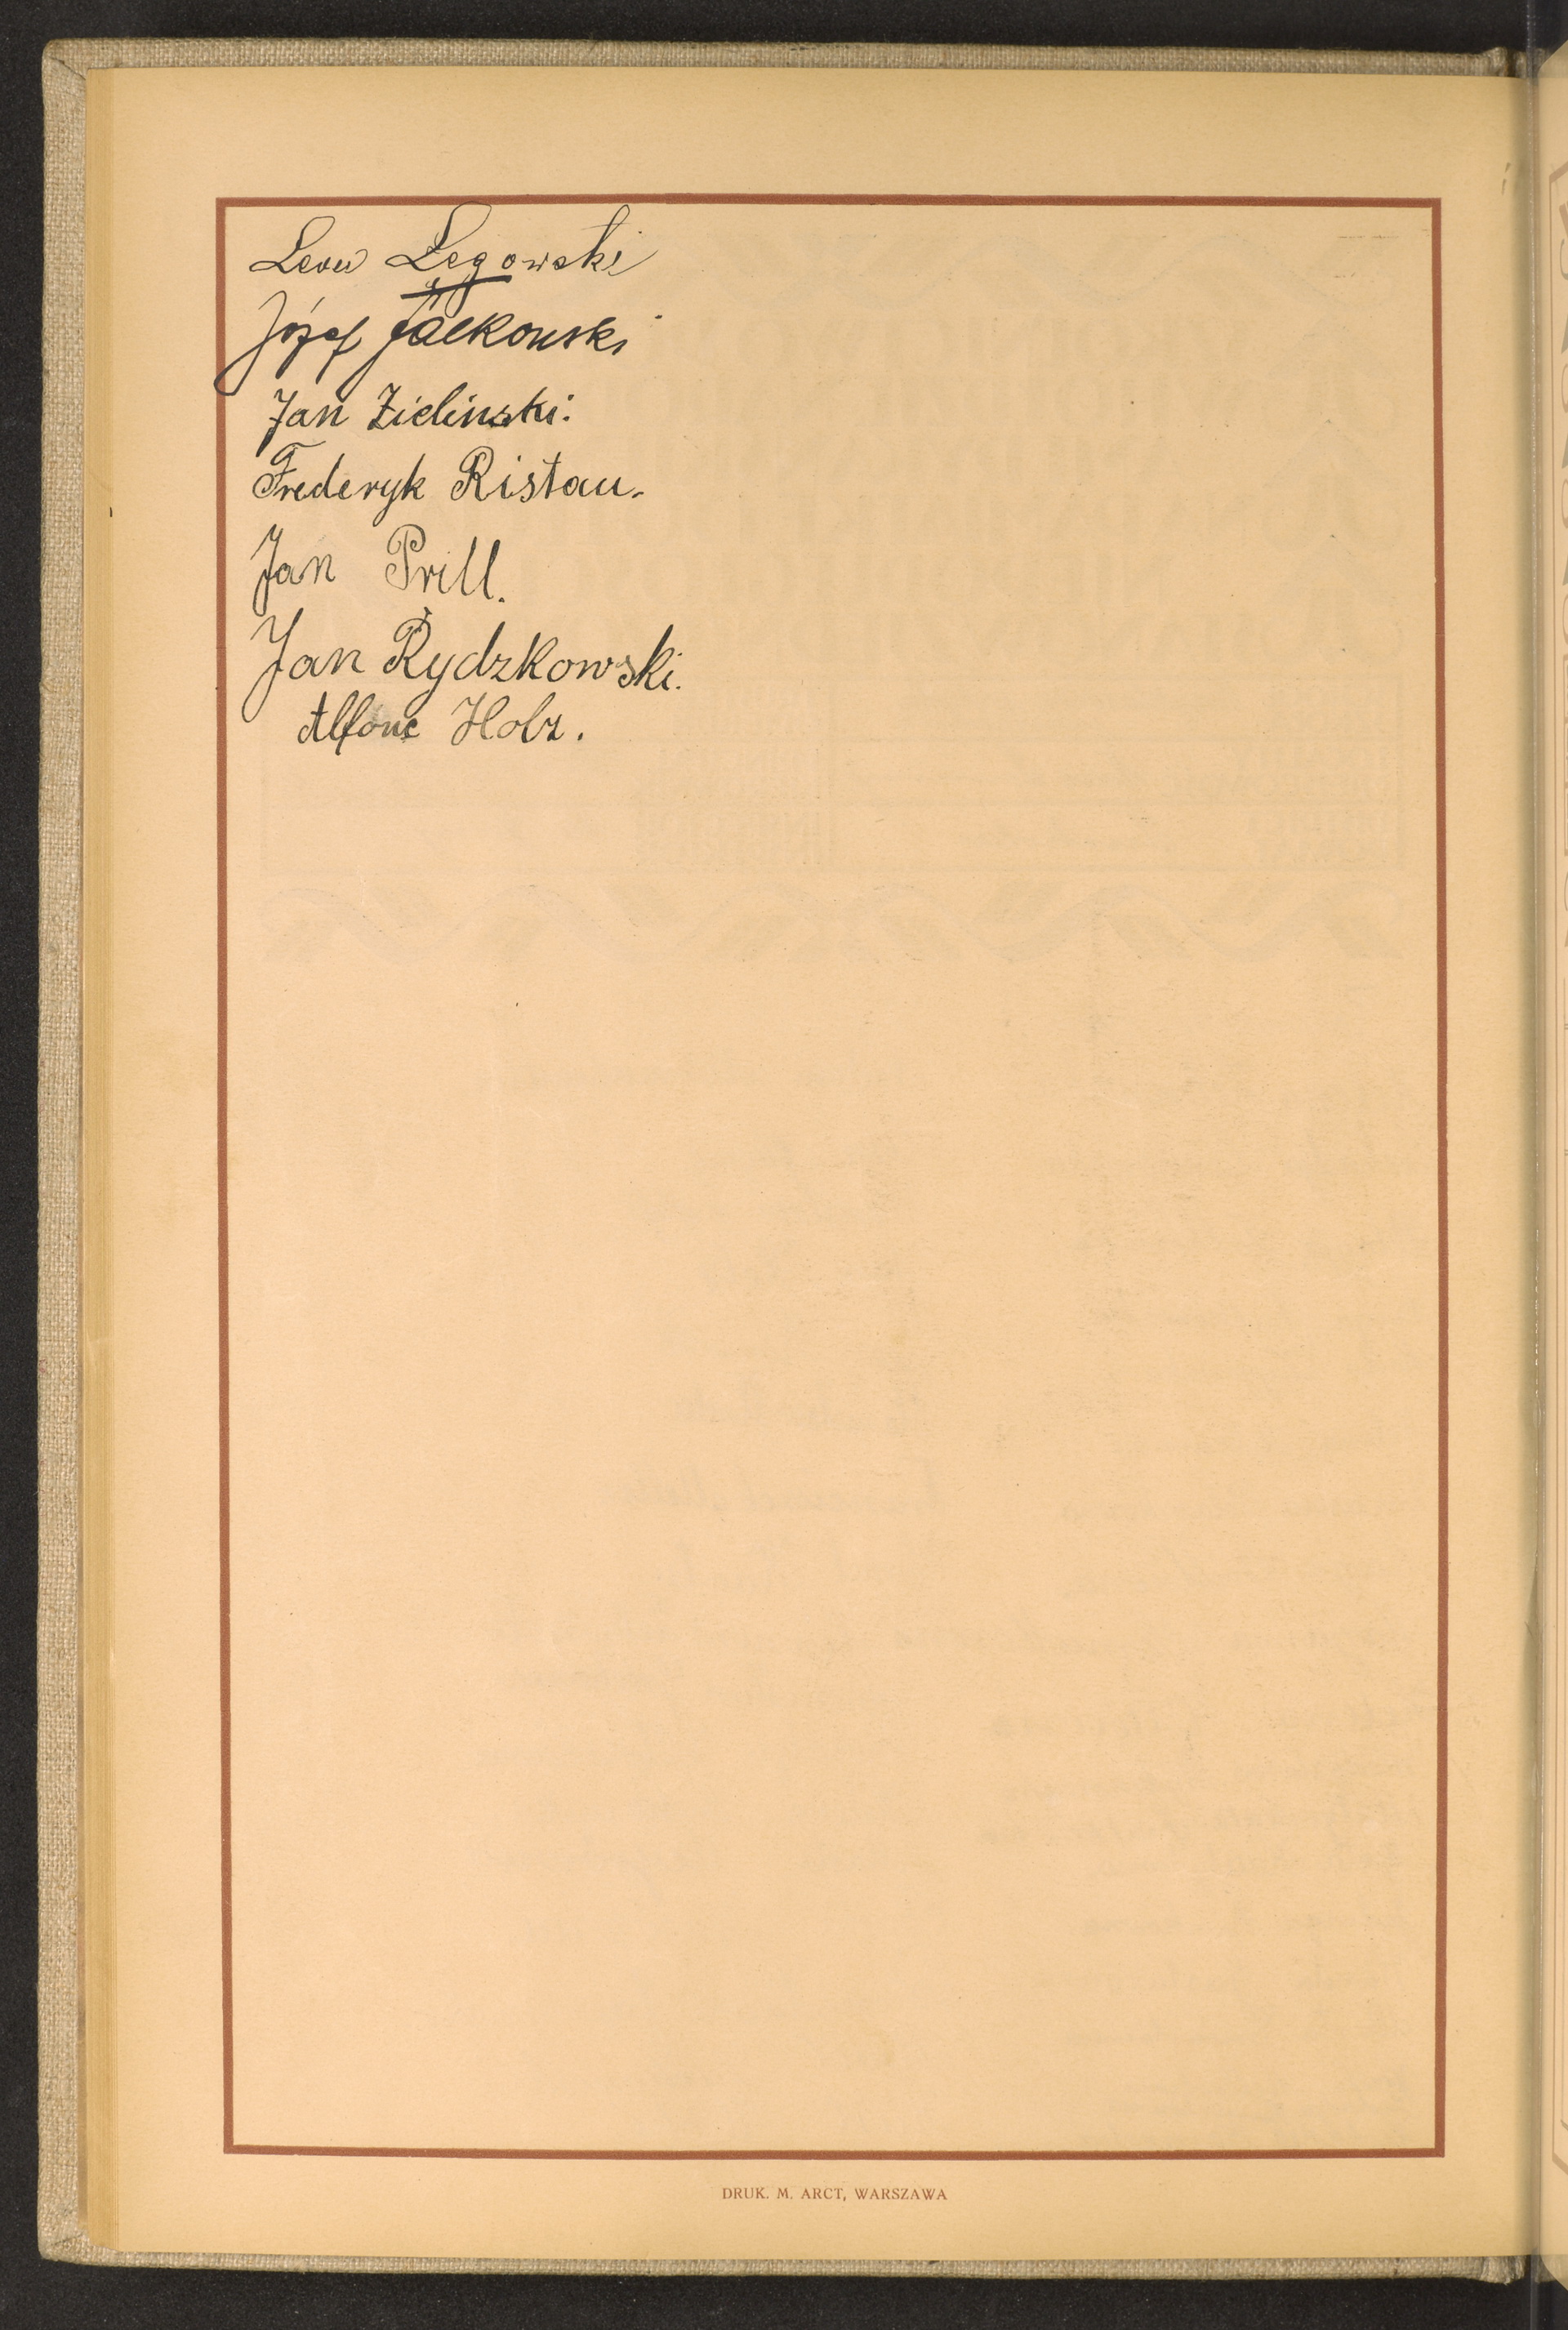 Leon Łęgowski
Józef Jałkowski
Jan Zieliński.
Frederyk Ristau.
Jan Prill.
Jan Rydzkowski.
Alfons Holz.
DRUK. M. ARCT, WARSZAWA